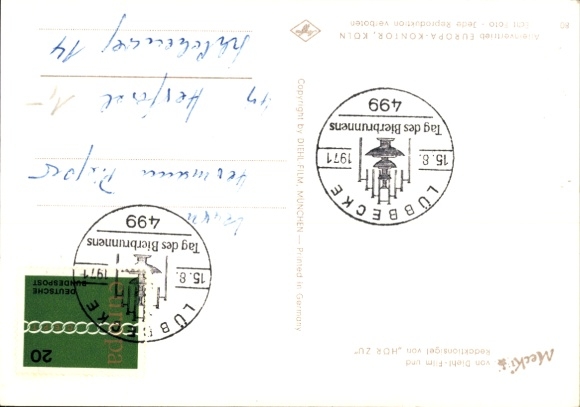 Mecki
von Diehl-Film und
Redaktionsigel von „HÖR ZU"
20
europa
DEUTSCHE
BUNDESPOST
LÜBBECKE
15.8. 1971
Tag des Bierbrunnens
499
LÜBBECKE
15.8. 1971
Tag des Bierbrunnens
499
Copyright by DIEHL FILM, MÜNCHEN — Printed in Germany
Herrn
Hermann
49 Herford
14
Alleinvertrieb EUROPA-KONTOR, KÖLN
Foto - Jede Reproduktion verboten